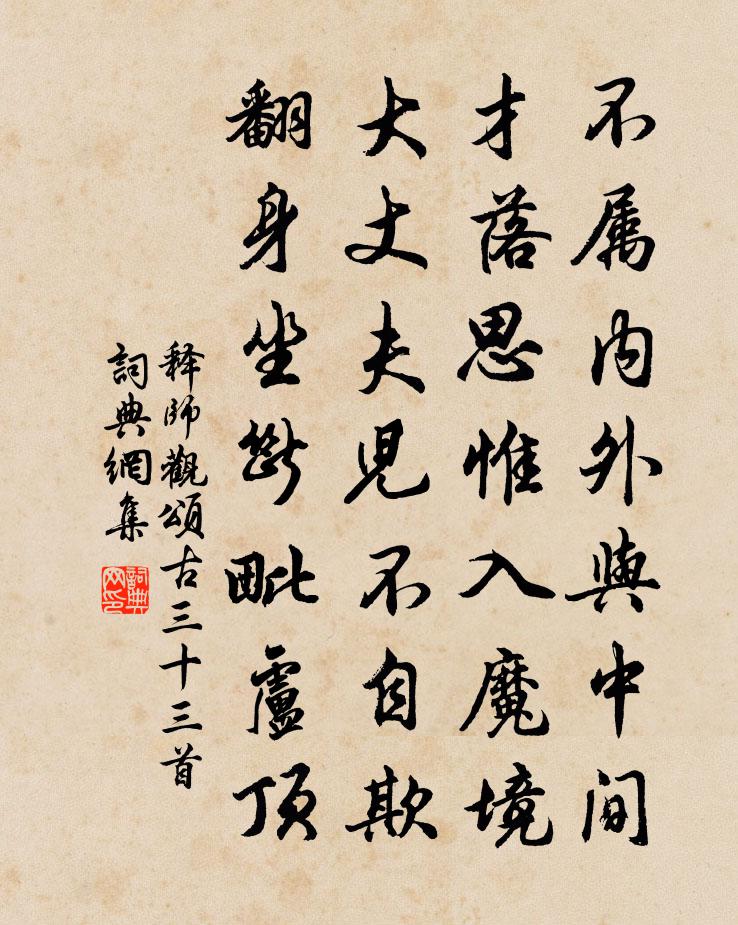 不属内外與中间
才落思惟入魔境
大丈夫児不自欺
翻身坐断毗盧顶
释师觀頌古三十三首
詞典網集
詞典
网印